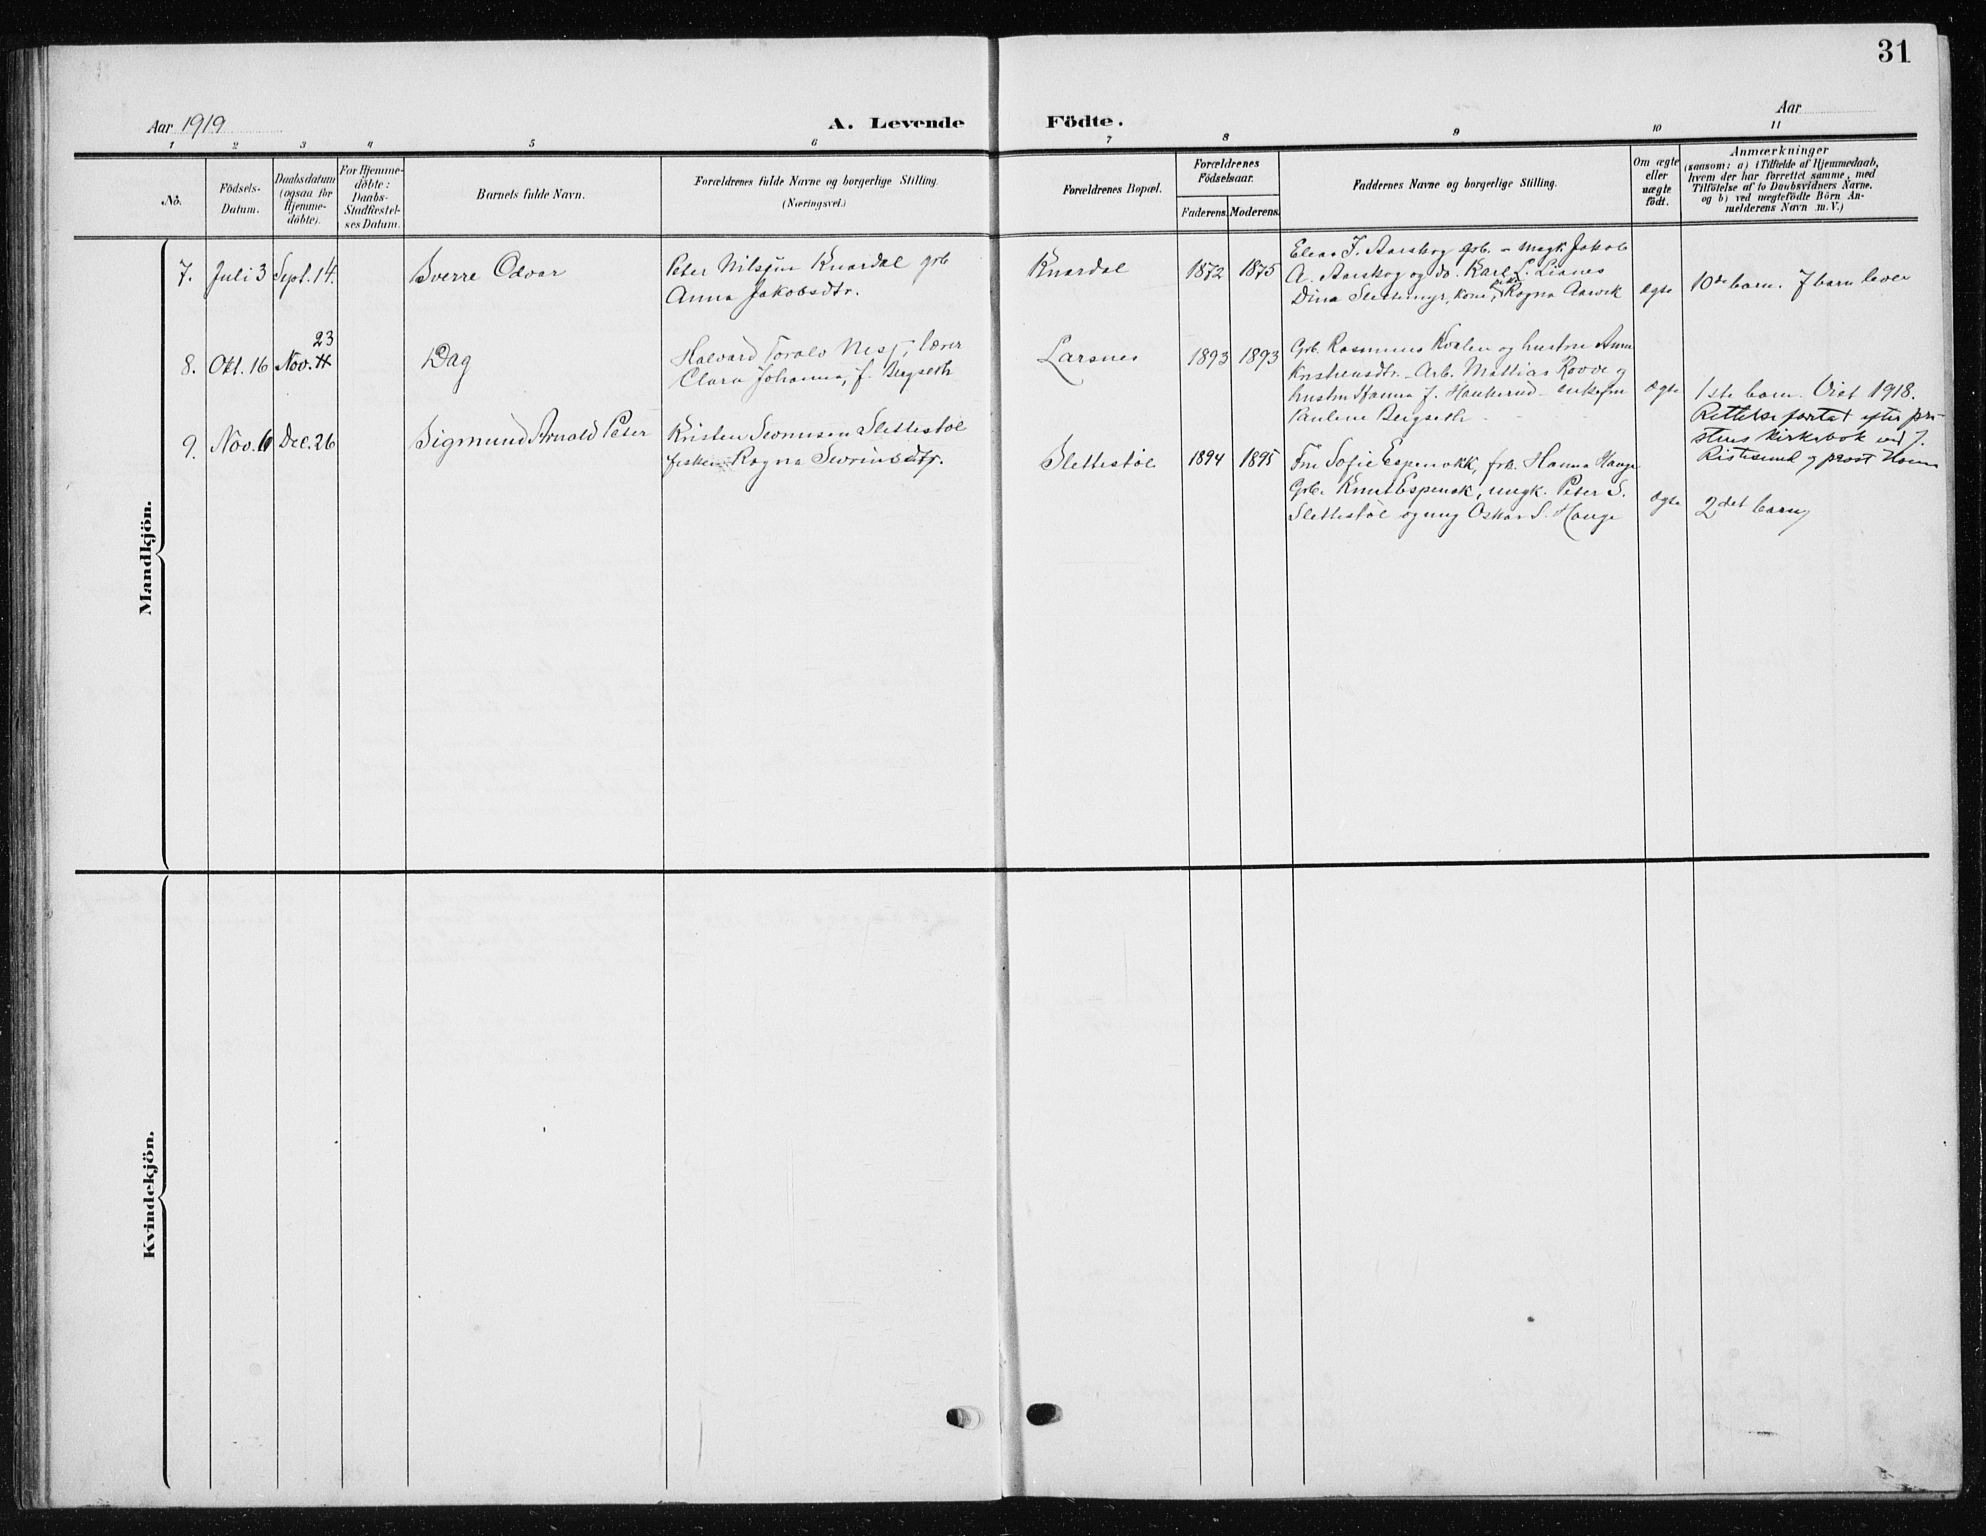 31
Aar 1919
A. Levende Födte.
Aar
1 2 3 4 5 6 7 8 9 10 11
No.
Födsels-
Datum.
Daabsdatum
(ogsaa for
Hjemme-
döbte).
For Hjemme-
döbte:
Daabs-
Stadfestel-
ses Datum.
Barnets fulde Navn.
Forældrenes fulde Navne og borgerlige Stilling.
(Næringsvei.)
Forældrenes Bopæl.
Forældrenes
Födselsaar.
Faderens. Moderens.
Faddernes Navne og borgerlige Stilling.
Om ægte
eller
uægte
födt.
Anmærkninger
(saasom: a) i Tilfælde af Hjemmedaab,
hvem der har forrettet samme, med
Tilföielse af to Daabsvidners Navne.
og b) ved uægtefödte Börn An-
melderens Navn m. V.)
Mandkjön.
7. Juli 3 Sept. 14.
Sverre Odvar
Peter Nilsen Knardal grb
Anna Jakobsdtr.
Knardal
1872 1875
Elias J. Aarskog grb. - ungk Jakob
A. Aarskog og do. Karl L. Lianes
Dina Slettemyr, kone, pike Ragna Aarvik
ægte
10de barn. 7 barn lever
8. Okt. 16 Nov.
23
Dag
Halvard Toralv Nes, lærer
Clara Johanna, f. Bergseth
Larsnes
1893 1893
Grb. Rasmus Kvalen og hustru Anna
Kristensdtr - Arb. Mattias Rovve og
hustru Hanna f. Haukerud - enkefru
Pauline Bergseth -
ægte
1ste barn. Viet 1918.
Rettelse fortat efter pre-
stens kirkebok ved J.
Ristesund og prost
9. Nov. 6 Dec. 26
Sigmund Arnold Peter
Kristen Sevrinsen Slettestøl
fisker Ragna Sevrinsdtr.
Slettestøl
1894 1895
Fru Sofie Espenakk, frk. Hanna Hauge
Grb. Knut Espenak, ungk. Peter S.
Slettestøl og ung Oskar S. Hauge
ægte
2det barn
Kvindekjön.